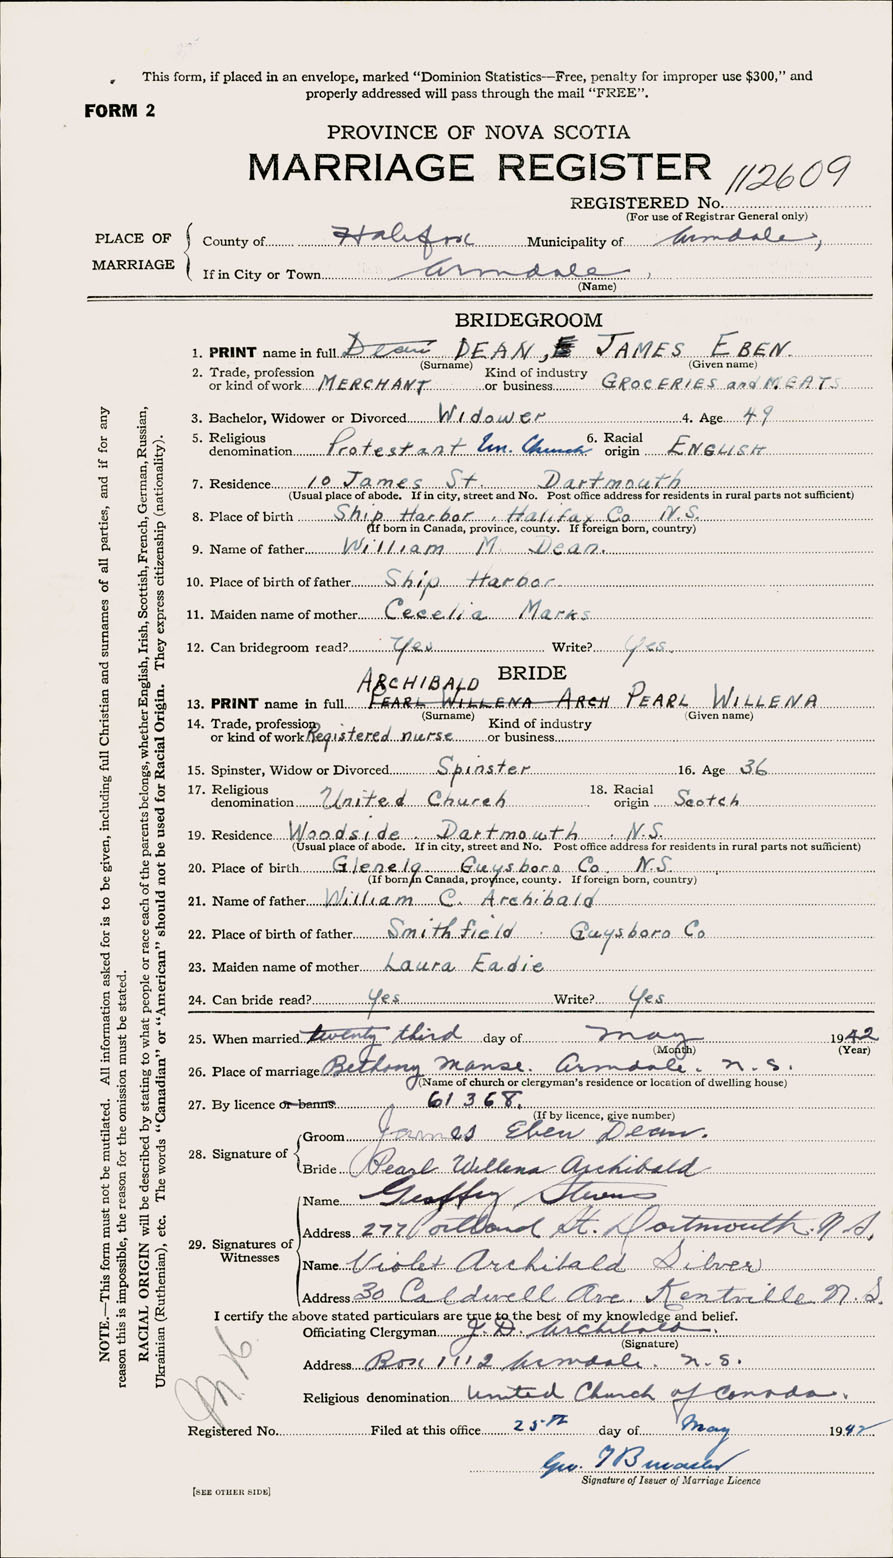 This form, if placed in an envelope, marked “Dominion Statistics—Free, penalty for improper use $300,” and
properly addressed will pass through the mail “FREE”.
FORM 2
PROVINCE OF NOVA SCOTIA
MARRIAGE REGISTER
REGISTERED No. 112609
(For use of Registrar General only)
PLACE OF MARRIAGE
County of Halifax Municipality of Armdale,
If in City or Town Armdale,
(Name)
BRIDEGROOM
1. PRINT name in full Dean DEAN, E JAMES EBEN.
(Surname) (Given name)
2. Trade, profession or kind of work MERCHANT Kind of industry or business GROCERIES and MEATS
3. Bachelor, Widower or Divorced Widower 4. Age 49
5. Religious denomination Protestant Un. Church 6. Racial origin ENGLISH
7. Residence 10 James St. Dartmouth
(Usual place of abode. If in city, street and No. Post office address for residents in rural parts not sufficient)
8. Place of birth Ship Harbor, Halifax Co N.S.
(If born in Canada, province, county. If foreign born, country)
9. Name of father William M. Dean.
10. Place of birth of father Ship Harbor
11. Maiden name of mother Cecelia Marks
12. Can bridegroom read? Yes Write? Yes.
BRIDE
ARCHIBALD
13. PRINT name in full PEARL WILLENA ARCH PEARL WILLENA
(Surname) (Given name)
14. Trade, profession or kind of work Registered nurse Kind of industry or business
15. Spinster, Widow or Divorced Spinster 16. Age 36
17. Religious denomination United Church 18. Racial origin Scotch
19. Residence Woodside. Dartmouth. N.S.
(Usual place of abode. If in city, street and No. Post office address for residents in rural parts not sufficient)
20. Place of birth Glenelg Guysboro Co. N.S.
(If born in Canada, province, county. If foreign born, country)
21. Name of father William C. Archibald
22. Place of birth of father Smithfield Guysboro Co
23. Maiden name of mother Laura Eadie
24. Can bride read? Yes Write? Yes
25. When married twenty third day of May 1942
(Month) (Year)
26. Place of marriage Bethany Manse. Armdale. N.S.
(Name of church or clergyman's residence or location of dwelling house)
27. By licence or banns 61368.
(If by licence, give number)
28. Signature of
Groom James Eben Dean.
Bride Pearl Willena Archibald
29. Signatures of Witnesses
Name Geoffrey Stevens
Address 277 Portland St. Dartmouth. N.S.
Name Violet Archibald Silver
Address 30 Caldwell Ave. Kentville N.S.
I certify the above stated particulars are true to the best of my knowledge and belief.
Officiating Clergyman J.D. Archibald.
(Signature)
Address Box 1112 Armdale. N.S.
Religious denomination United Church of Canada.
Registered No. Filed at this office 25th day of May 1942
Geo.
Signature of Issuer of Marriage Licence
[SEE OTHER SIDE]
NOTE.—This form must not be mutilated. All information asked for is to be given, including full Christian and surnames of all parties, and if for any
reason this is impossible, the reason for the omission must be stated.
RACIAL ORIGIN will be described by stating to what people or race each of the parents belongs, whether English, Irish, Scottish, French, German, Russian,
Ukrainian (Ruthenian), etc. The words “Canadian” or “American” should not be used for Racial Origin. They express citizenship (nationality).